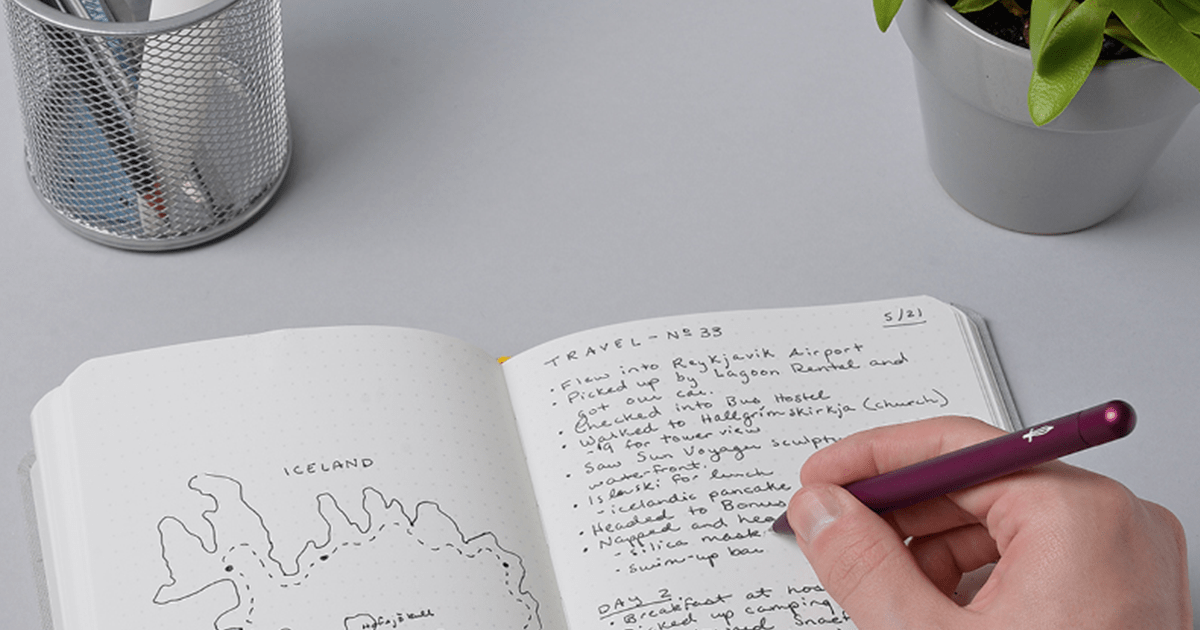 ICELAND
Hofsjökull
TRAVEL - Nº 33
5/21
• Flew into Reykjavik Airport
• Picked up by Lagoon Rental and
got our car.
• Checked into Bus Hostel
• Walked to Hallgrímskirkja (church)
- $9 for tower view
• Saw Sun Voyager
waterfront.
for lunch
- icelandic pancake
• Headed to Bonus
• Napped and
- silica mask
- swim-up bar
DAY 2
• Breakfast at
• Picked up camping